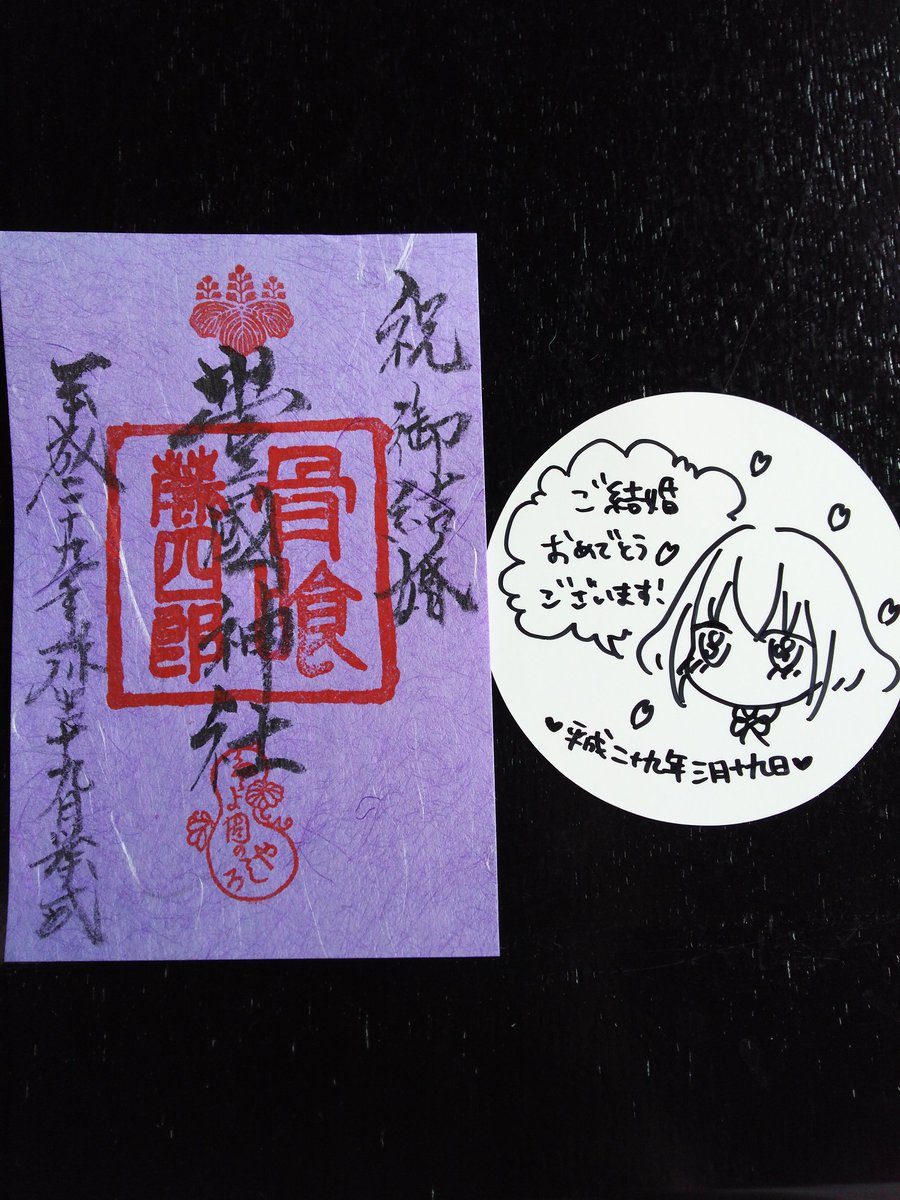 祝御結婚
豊國神社
骨喰
藤四郎
とよ国の
やしろ
平成二十九年弥生十九日挙式
ご結婚
おめでとう
ございます!
平成二十九年三月十九日